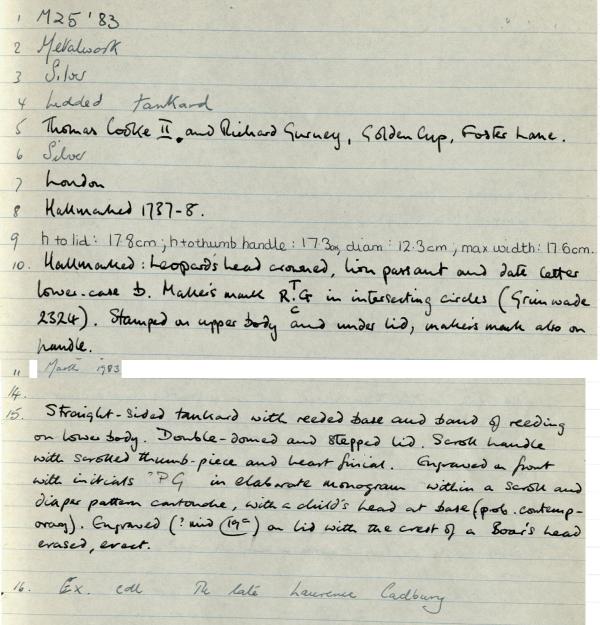 1 M25 '83
2 Metalwork
3 Silver
4 Lidded tankard
5 Thomas Cooke II and Richard Gurney, Golden Cup, Foster Lane.
6 Silver
7 London
8 Hallmarked 1737-8.
9 h to lid: 17.8cm; h to thumb handle: 17.3cm, diam: 12.3cm; max width: 17.6cm.
10. Hallmarked: Leopard's head crowned, lion passant and date letter
lower-case b. Maker's mark R.G in intersecting circles (Grimwade
T
C
2324). Stamped on upper body and under lid, maker's mark also on
handle.
11 March 1983
14.
15. Straight-sided tankard with reeded base and band of reeding
on lower body. Double-domed and stepped lid. Scroll handle
with scrolled thumb-piece and heart finial. Engraved on front
with initials ?PG in elaborate monogram within a scroll and
diaper pattern cartouche, with a child's head at base (prob. contemp-
orary). Engraved (? mid 19c) on lid with the crest of a Boar's head
erased, erect.
16. Ex. coll The late Laurence Cadbury